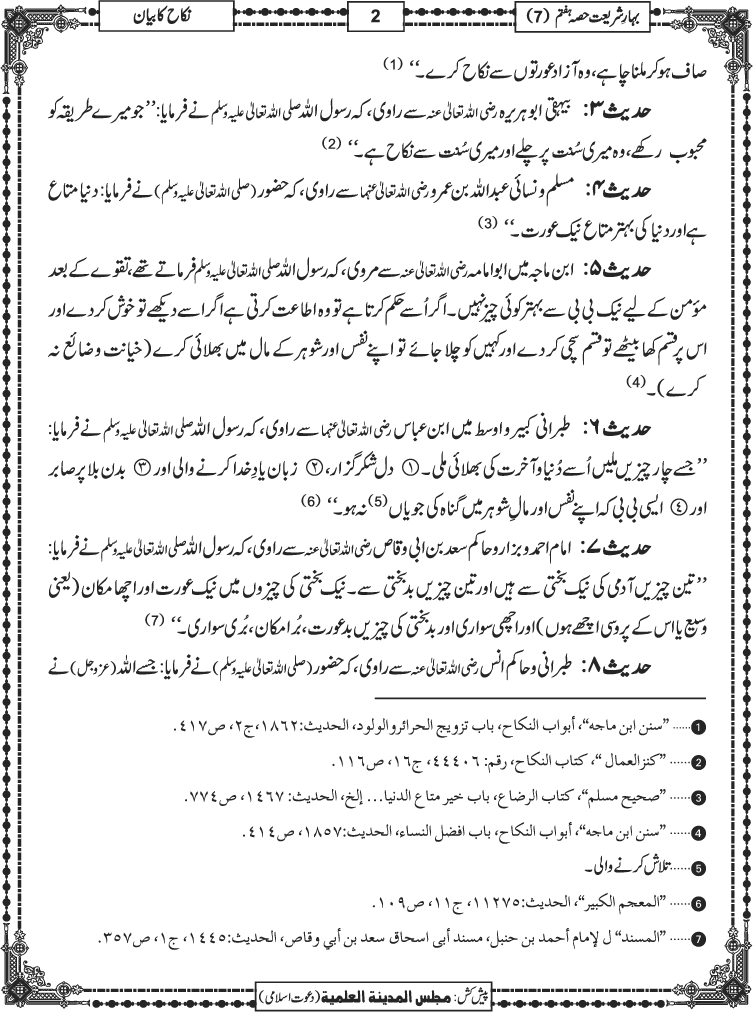 بہارِ شریعت حصہ ہفتم (7)
2
نکاح کا بیان
صاف ہو کر ملنا چاہے، وہ آزاد عورتوں سے نکاح کرے۔‘‘ (1)
حدیث ۳: بیہقی ابوہریرہ رضی اللہ تعالیٰ عنہ سے راوی، کہ رسول اللہ صلی اللہ تعالیٰ علیہ وسلم نے فرمایا: ’’جو میرے طریقہ کو
محبوب رکھے، وہ میری سُنت پر چلے اور میری سُنت سے نکاح ہے۔‘‘ (2)
حدیث ۴: مسلم و نسائی عبداللہ بن عمرو رضی اللہ تعالیٰ عنہما سے راوی، کہ حضور (صلی اللہ تعالیٰ علیہ وسلم) نے فرمایا: دنیا متاع
ہے اور دنیا کی بہتر متاع نیک عورت۔‘‘ (3)
حدیث ۵: ابن ماجہ میں ابوامامہ رضی اللہ تعالیٰ عنہ سے مروی، کہ رسول اللہ صلی اللہ تعالیٰ علیہ وسلم فرماتے تھے، تقوے کے بعد
مؤمن کے لیے نیک بی بی سے بہتر کوئی چیز نہیں۔ اگر اُسے حکم کرتا ہے تو وہ اطاعت کرتی ہے اگر اسے دیکھے تو خوش کر دے اور
اس پر قسم کھا بیٹھے تو قسم سچی کر دے اور کہیں کو چلا جائے تو اپنے نفس اور شوہر کے مال میں بھلائی کرے (خیانت و ضائع نہ
کرے)۔ (4)
حدیث ۶: طبرانی کبیر و اوسط میں ابن عباس رضی اللہ تعالیٰ عنہما سے راوی، کہ رسول اللہ صلی اللہ تعالیٰ علیہ وسلم نے فرمایا:
’’جسے چار چیزیں ملیں اُسے دُنیا و آخرت کی بھلائی ملی۔ ① دل شکر گزار، ② زبان یادِ خدا کرنے والی اور ③ بدن بلا پر صابر
اور ④ ایسی بی بی کہ اپنے نفس اور مالِ شوہر میں گناہ کی جویاں (5) نہ ہو۔‘‘ (6)
حدیث ۷: امام احمد و بزار و حاکم سعد بن ابی وقاص رضی اللہ تعالیٰ عنہ سے راوی، کہ رسول اللہ صلی اللہ تعالیٰ علیہ وسلم نے فرمایا:
’’تین چیزیں آدمی کی نیک بختی سے ہیں اور تین چیزیں بدبختی سے۔ نیک بختی کی چیزوں میں نیک عورت اور اچھا مکان (یعنی
وسیع یا اس کے پروسی اچھے ہوں) اور اچھی سواری اور بدبختی کی چیزیں بد عورت، بُرا مکان، بُری سواری۔‘‘ (7)
حدیث ۸: طبرانی و حاکم انس رضی اللہ تعالیٰ عنہ سے راوی، کہ حضور (صلی اللہ تعالیٰ علیہ وسلم) نے فرمایا: جسے اللہ (عزوجل) نے
1 ...... ”سنن ابن ماجه“، أبواب النكاح، باب تزويج الحرائر والولود، الحديث: ١٨٦٢، ج٢، ص٤١٧.
2 ...... ”كنز العمال“، كتاب النكاح، رقم: ٤٤٤٠٦، ج١٦، ص١١٦.
3 ...... ”صحيح مسلم“، كتاب الرضاع، باب خير متاع الدنيا... إلخ، الحديث: ١٤٦٧، ص٧٧٤.
4 ...... ”سنن ابن ماجه“، أبواب النكاح، باب افضل النساء، الحديث: ١٨٥٧، ص٤١٤.
5 ...... تلاش کرنے والی۔
6 ...... ”المعجم الكبير“، الحديث: ١١٢٧٥، ج١١، ص١٠٩.
7 ...... ”المسند“ ل لإمام أحمد بن حنبل، مسند أبى اسحاق سعد بن أبي وقاص، الحديث: ١٤٤٥، ج١، ص٣٥٧.
پیش کش: مجلس المدينة العلمية (دعوت اسلامی)